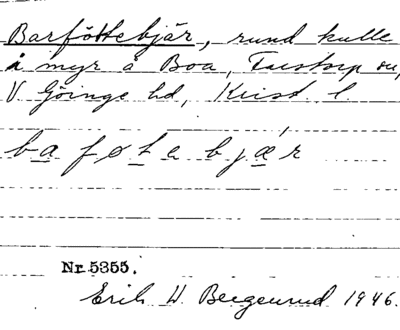 Barföttebjär, rund kulle
å myr å Boa, Farstorp sn,
V Göinge hd, Krist. l.
baføtebjær
Nr. 5355.
Erik W Bergenrud 1946.